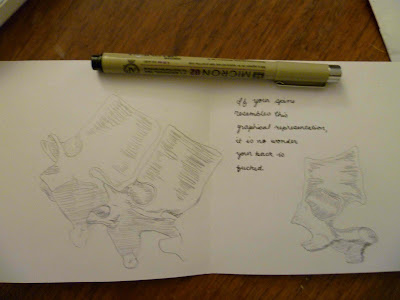 MICRON 02
If your spine
resembles this
graphical representation,
it is no wonder
your back is
fucked.